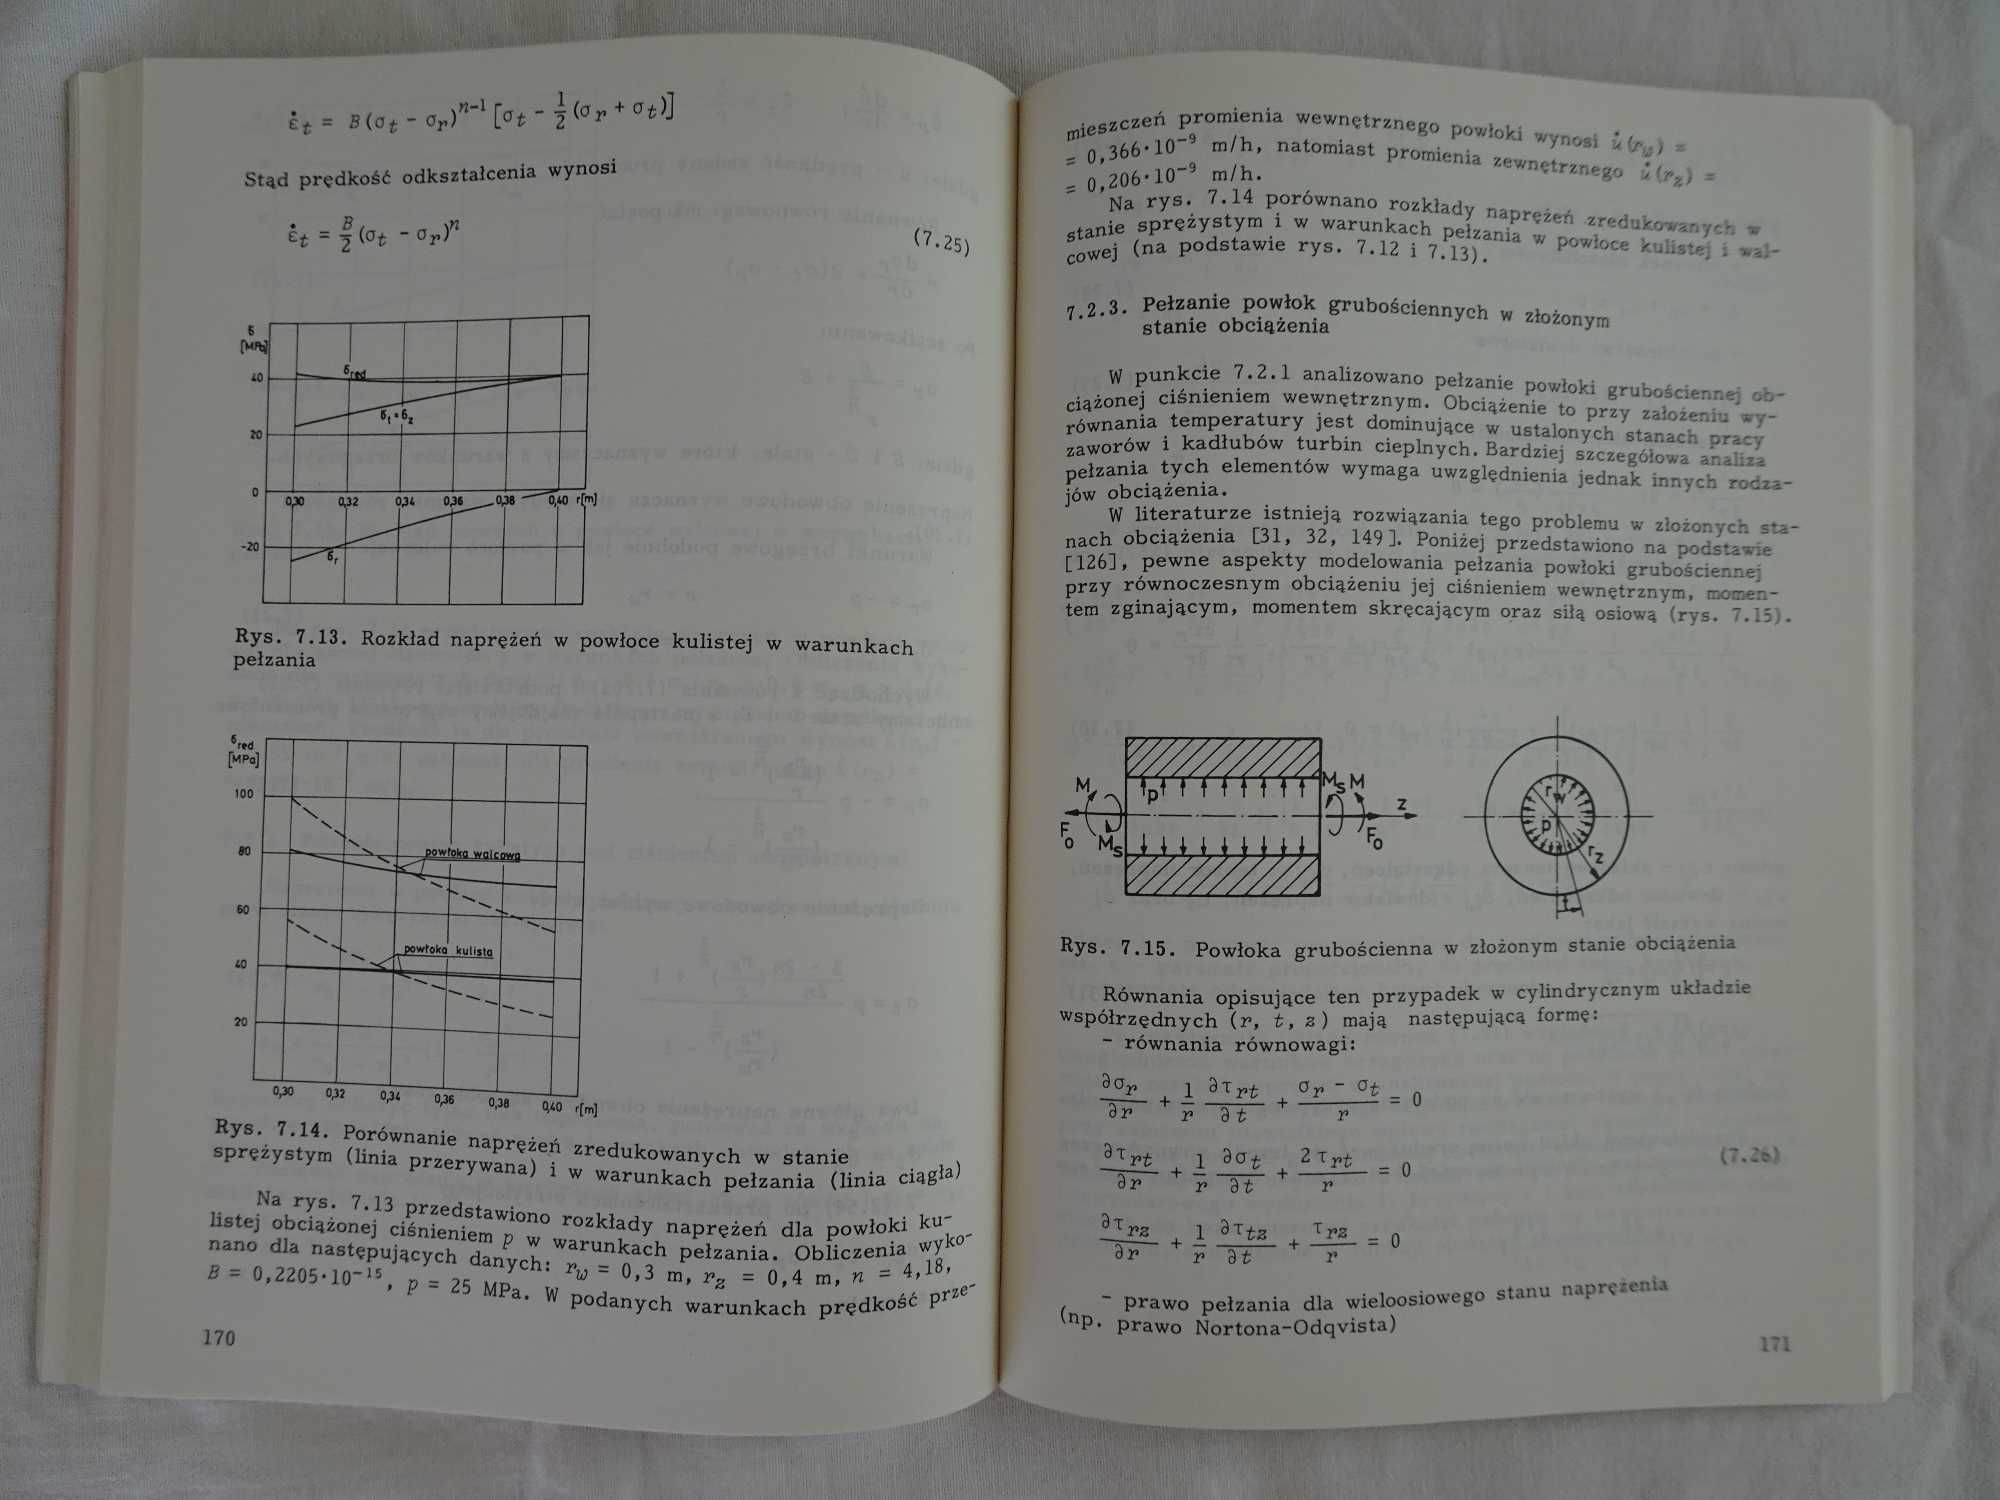 ε̇t = B(σt - σr)ⁿ⁻¹ [σt - 1/2 (σr + σt)]
Stąd prędkość odkształcenia wynosi
ε̇t = B/2 (σt - σr)ⁿ (7.25)
б
[MPa]
40
20
0
-20
бred
бt=бz
бr
0,30 0,32 0,34 0,36 0,38 0,40 r[m]
Rys. 7.13. Rozkład naprężeń w powłoce kulistej w warunkach
pełzania
бred
[MPa]
100
80
60
40
20
powłoka walcowa
powłoka kulista
0,30 0,32 0,34 0,36 0,38 0,40 r[m]
Rys. 7.14. Porównanie naprężeń zredukowanych w stanie
sprężystym (linia przerywana) i w warunkach pełzania (linia ciągła)
Na rys. 7.13 przedstawiono rozkłady naprężeń dla powłoki ku-
listej obciążonej ciśnieniem p w warunkach pełzania. Obliczenia wyko-
nano dla następujących danych: rw = 0,3 m, rz = 0,4 m, n = 4,18,
B = 0,2205·10⁻¹⁵, p = 25 MPa. W podanych warunkach prędkość prze-
170
mieszczeń promienia wewnętrznego powłoki wynosi u̇(rw) =
= 0,366·10⁻⁹ m/h, natomiast promienia zewnętrznego u̇(rz) =
= 0,206·10⁻⁹ m/h.
Na rys. 7.14 porównano rozkłady naprężeń zredukowanych w
stanie sprężystym i w warunkach pełzania w powłoce kulistej i wal-
cowej (na podstawie rys. 7.12 i 7.13).
7.2.3. Pełzanie powłok grubościennych w złożonym
stanie obciążenia
W punkcie 7.2.1 analizowano pełzanie powłoki grubościennej ob-
ciążonej ciśnieniem wewnętrznym. Obciążenie to przy założeniu wy-
równania temperatury jest dominujące w ustalonych stanach pracy
zaworów i kadłubów turbin cieplnych. Bardziej szczegółowa analiza
pełzania tych elementów wymaga uwzględnienia jednak innych rodza-
jów obciążenia.
W literaturze istnieją rozwiązania tego problemu w złożonych sta-
nach obciążenia [31, 32, 149]. Poniżej przedstawiono na podstawie
[126], pewne aspekty modelowania pełzania powłoki grubościennej
przy równoczesnym obciążeniu jej ciśnieniem wewnętrznym, momen-
tem zginającym, momentem skręcającym oraz siłą osiową (rys. 7.15).
M Fo Ms p Ms M Fo z
rw p rz t
Rys. 7.15. Powłoka grubościenna w złożonym stanie obciążenia
Równania opisujące ten przypadek w cylindrycznym układzie
współrzędnych (r, t, z) mają następującą formę:
- równania równowagi:
∂σr/∂r + 1/r ∂τrt/∂t + (σr - σt)/r = 0
∂τrt/∂r + 1/r ∂σt/∂t + 2τrt/r = 0 (7.26)
∂τrz/∂r + 1/r ∂τtz/∂t + τrz/r = 0
- prawo pełzania dla wieloosiowego stanu naprężenia
(np. prawo Nortona-Odqvista)
171